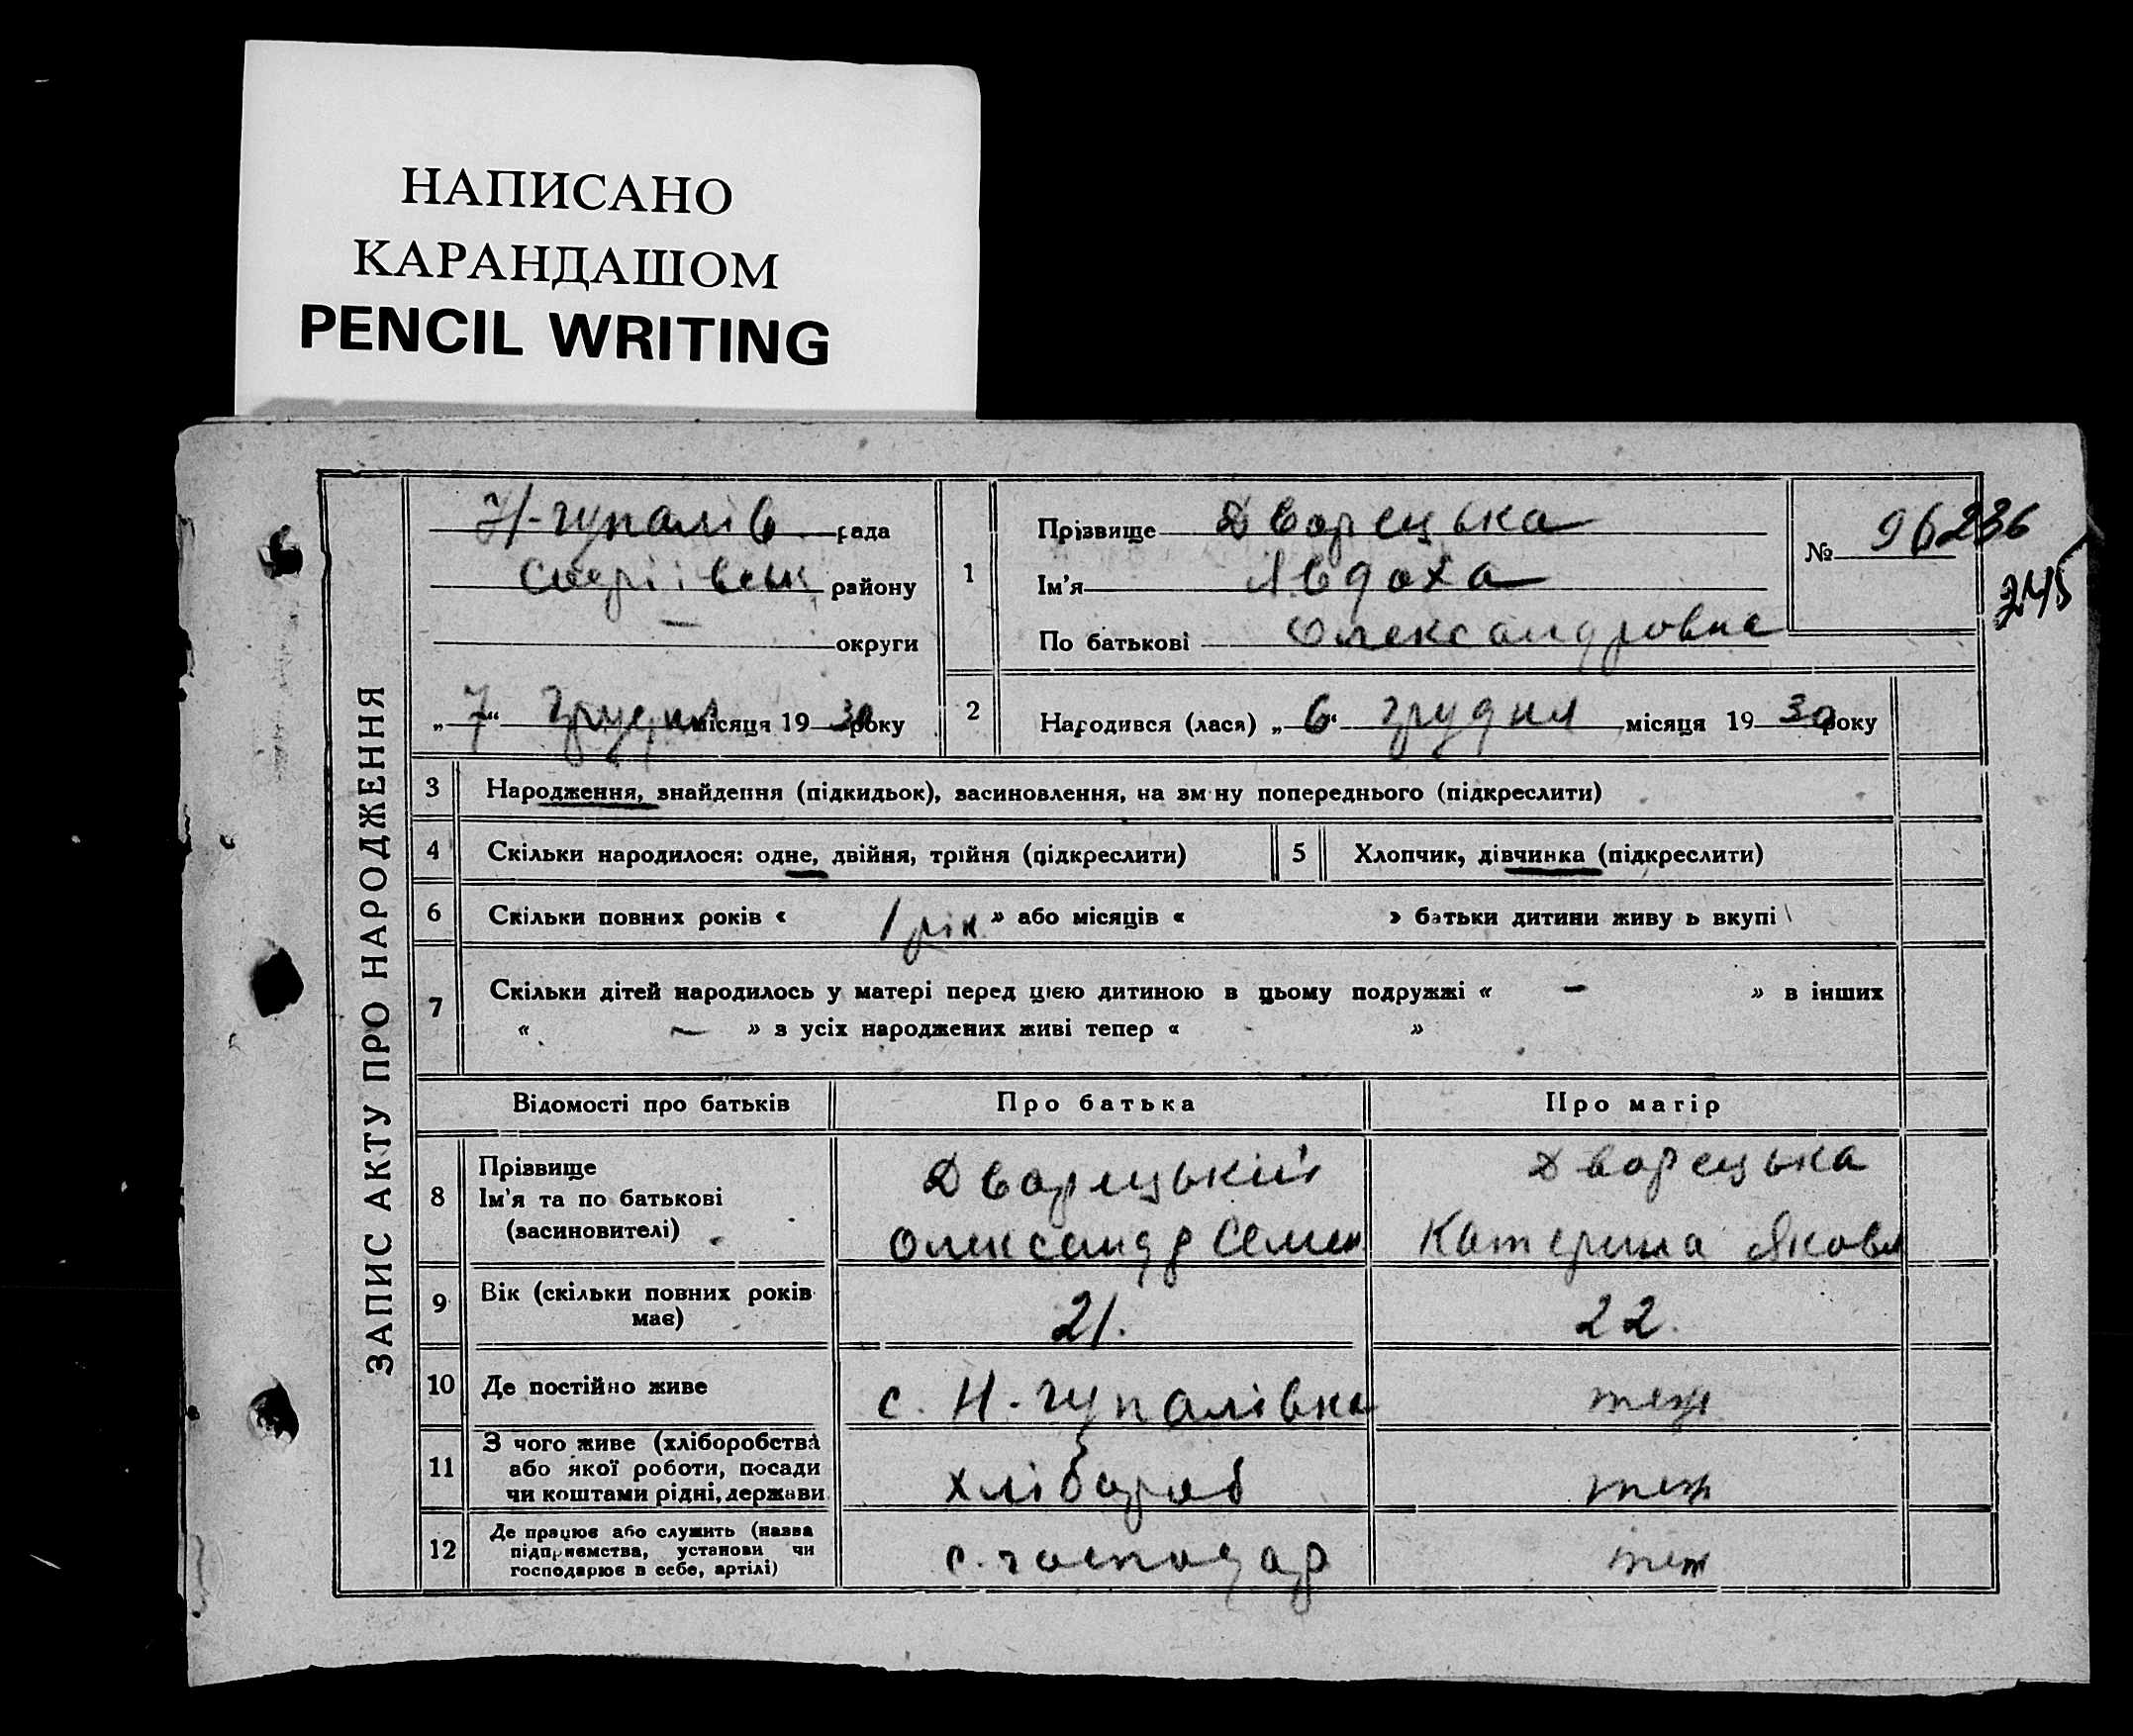 НАПИСАНО
КАРАНДАШОМ
PENCIL WRITING
ЗАПИС АКТУ ПРО НАРОДЖЕННЯ
Н-гупалів рада
району
— округи
„ 7 “ грудня місяця 19 30 року
1
Прізвище Дворецька
Ім’я Явдоха
По батькові Олександровна
№ 96 236
245
2 Народився (лася) „ 6 “ грудня місяця 19 30 року
3 Народження, знайдення (підкидьок), засиновлення, на зм ну попереднього (підкреслити)
4 Скільки народилося: одне, двійня, трійня (підкреслити) 5 Хлопчик, дівчинка (підкреслити)
6 Скільки повних років « 1 рік » або місяців « » батьки дитини живу ь вкупі
7 Скільки дітей народилось у матері перед цією дитиною в цьому подружжі « — » в інших
« — » з усіх народжених живі тепер « - »
Відомості про батьків Про батька Про матір
8 Прізвище
Ім’я та по батькові
(засиновителі)
Дворецький
Олександр Семен
Дворецька
Катерина Яковл
9 Вік (скільки повних років
має)
21. 22.
10 Де постійно живе с. Н-гупалівка теж
11 З чого живе (хліборобства
або якої роботи, посади
чи коштами рідні, держави
хлібороб теж
12 Де працює або служить (назва
підприємства, установи чи
господарює в себе, артілі)
с. господар теж